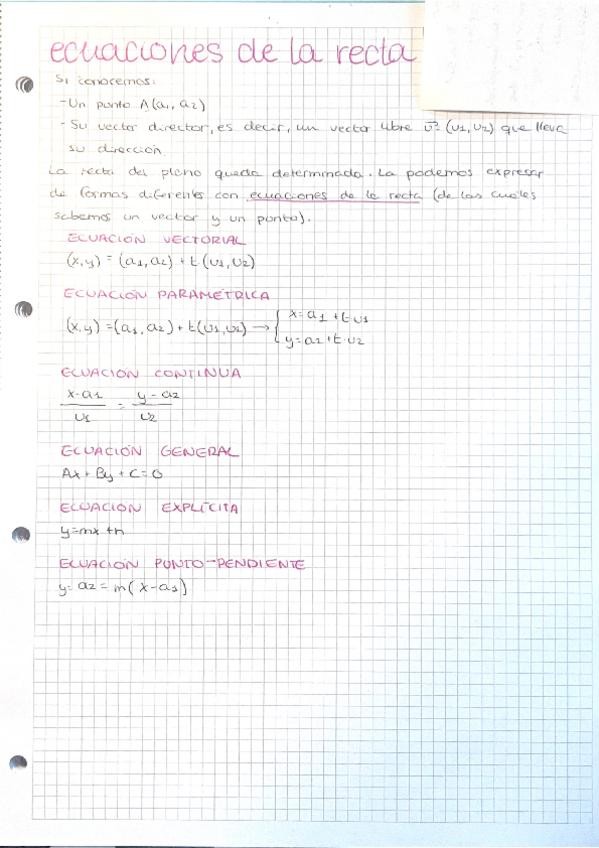 ecuaciones de la recta
Si conocemos:
-Un punto A(a₁, a₂)
-Su vector director, es decir, un vector libre v⃗=(v₁,v₂) que lleva
su dirección
La recta del plano queda determinada. La podemos expresar
de formas diferentes con ecuaciones de la recta (de las cuales
sabemos un vector y un punto).
ECUACIÓN VECTORIAL
(x,y) = (a₁,a₂) + t(v₁,v₂)
ECUACIÓN PARAMÉTRICA
(x,y) = (a₁,a₂) + t(v₁,v₂) → { x=a₁ + t·v₁
y=a₂ + t·v₂
ECUACIÓN CONTINUA
x-a₁/v₁ = y-a₂/v₂
ECUACIÓN GENERAL
Ax + By + C = 0
ECUACIÓN EXPLÍCITA
y=mx+n
ECUACIÓN PUNTO-PENDIENTE
y= a₂ = m(x-a₁)